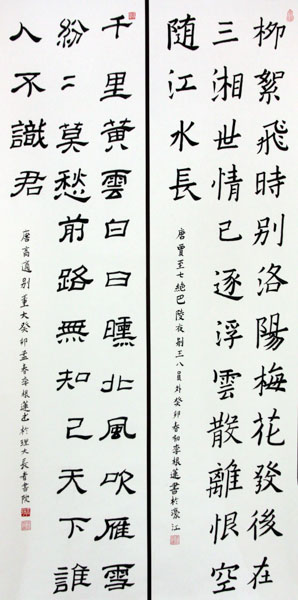 柳絮飛時别洛陽梅花發後在
三湘世情已逐浮雲散離恨空
随江水長
唐賈至七絶巴陵夜别王八員外癸卯春初李根蓮書於濠江
千里黃雲白日曛北風吹雁雪
紛〻莫愁前路無知己天下誰
人不識君
唐高適别董大癸卯孟春李根蓮書於理大長青書院